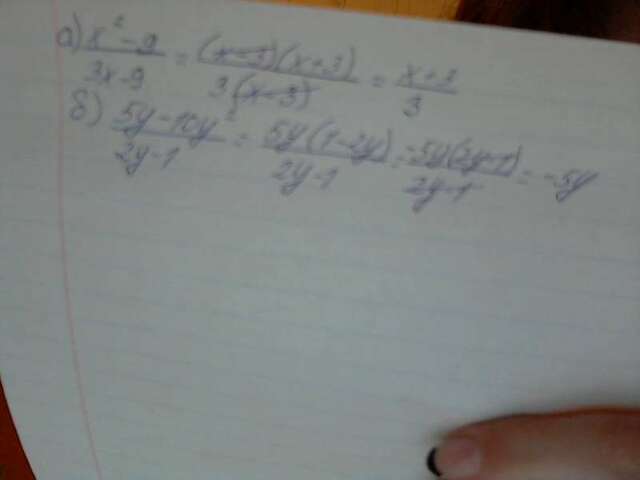 а) x²-9/3x-9 = (x-3)(x+3)/3(x-3) = x+3/3
б) 5y-10y²/2y-1 = 5y(1-2y)/2y-1 = -5y(2y-1)/2y-1 = -5y